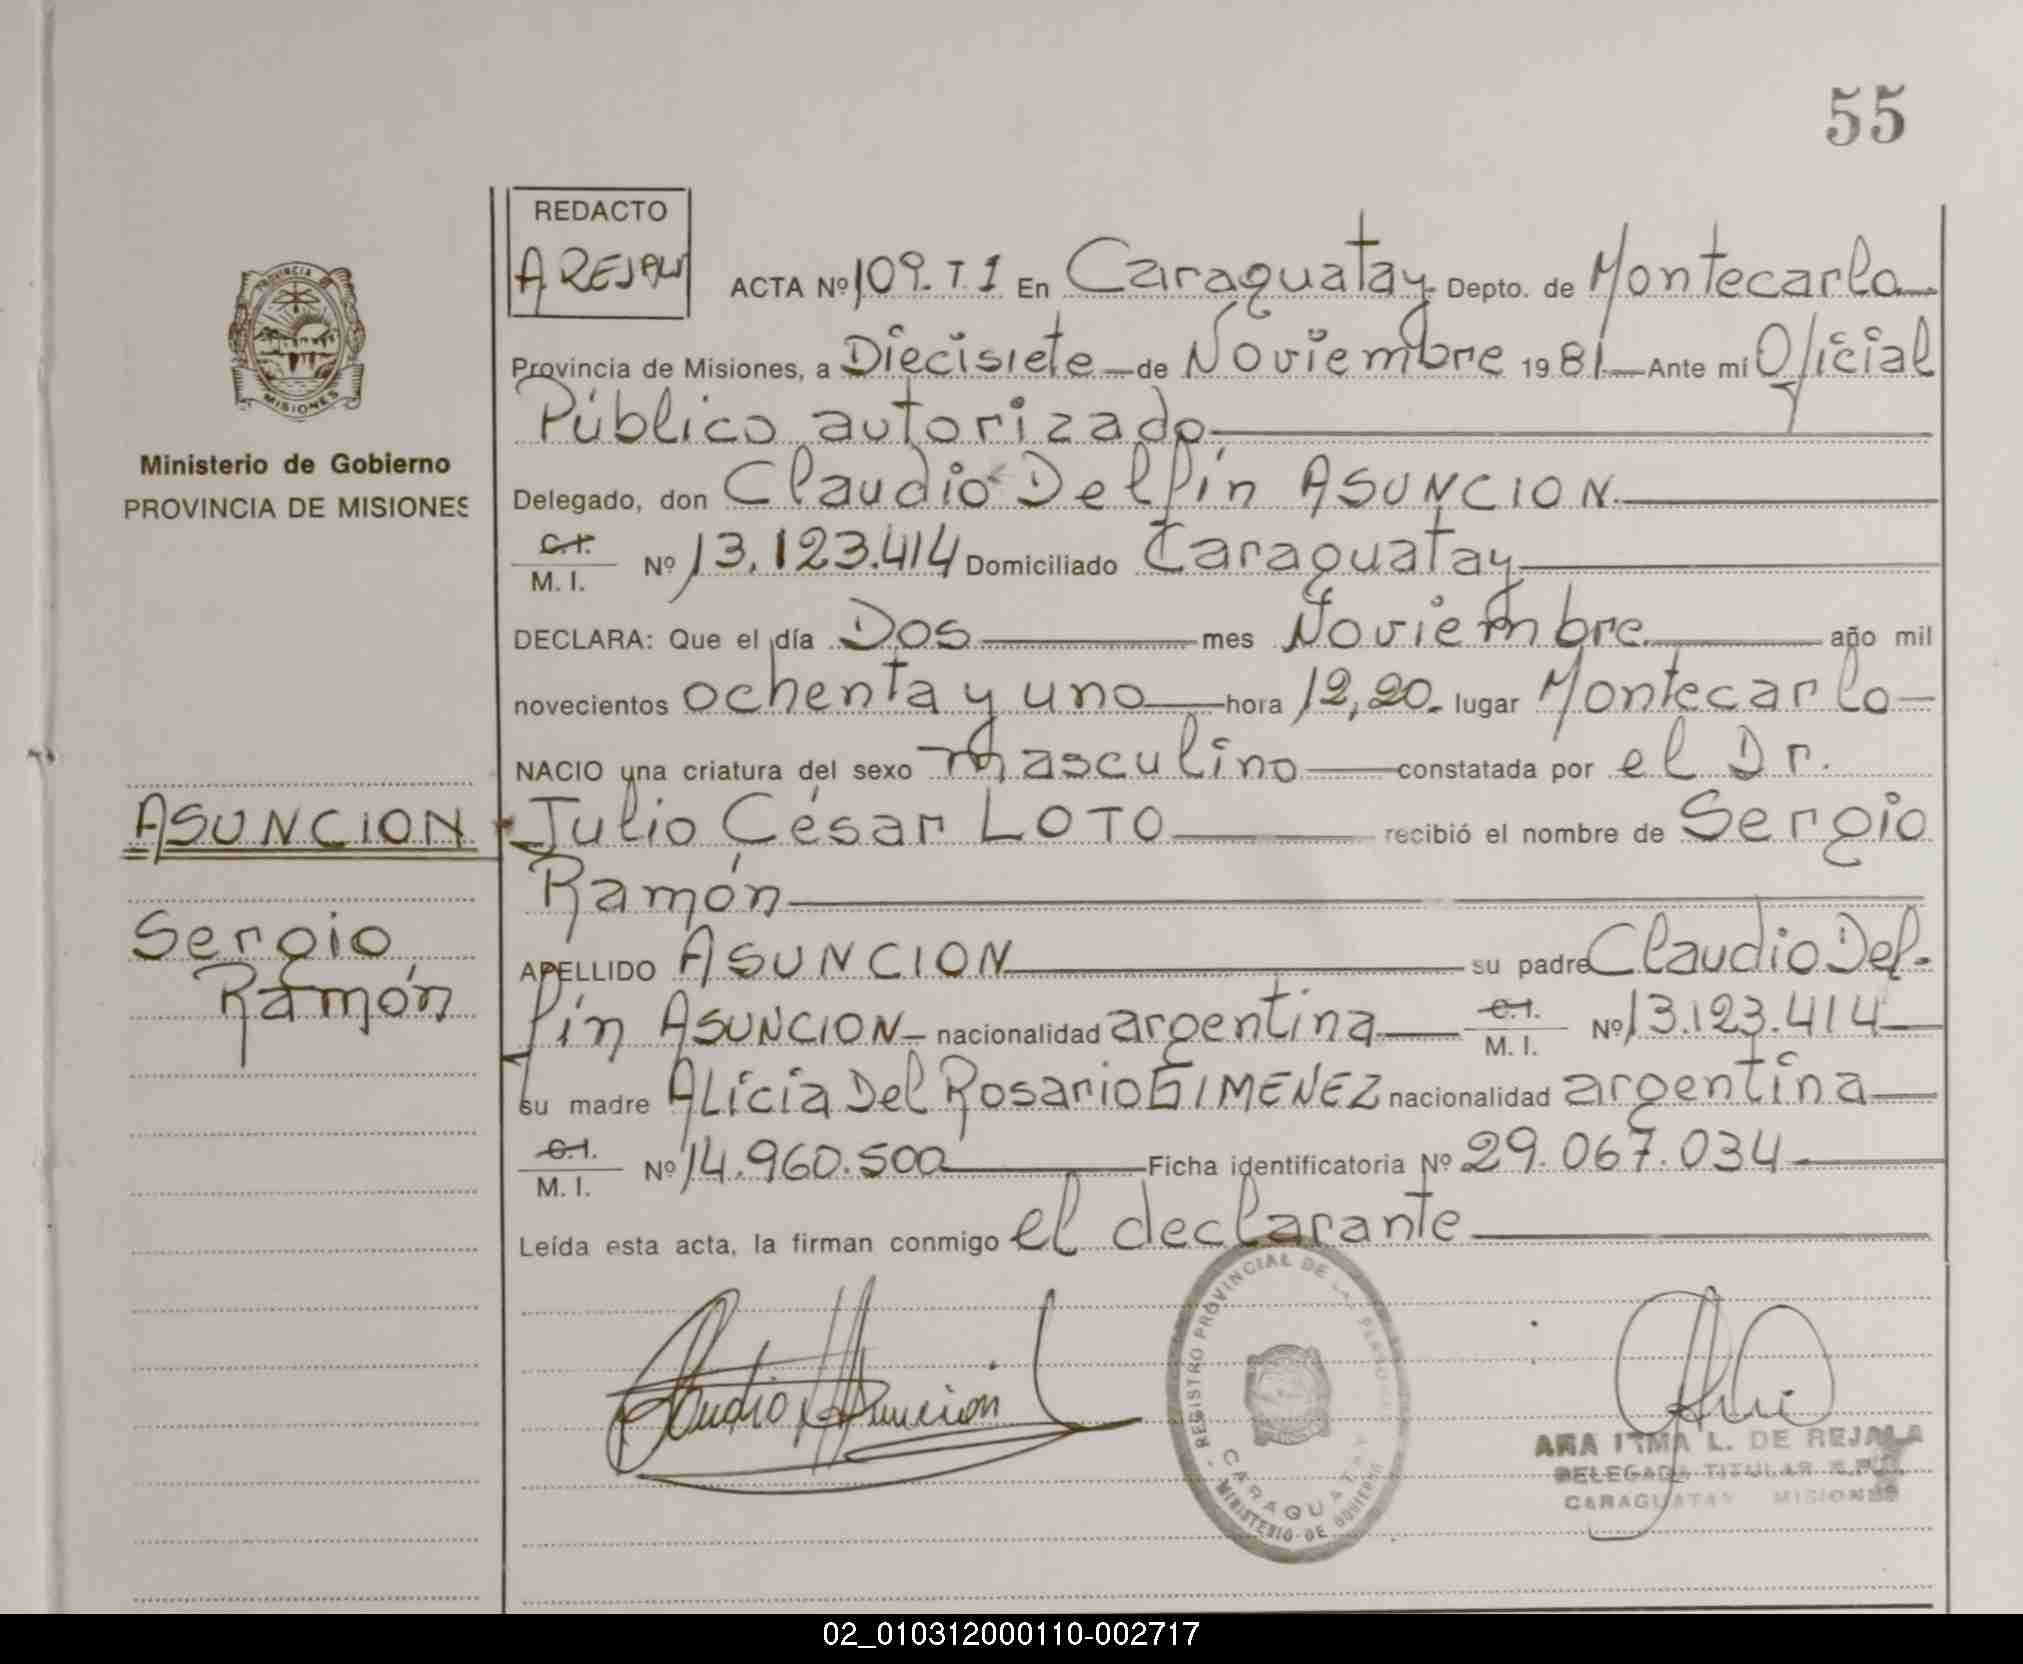 55
REDACTO
A REJALA
PROVINCIA
MISIONES
Ministerio de Gobierno
PROVINCIA DE MISIONES
ACTA Nº 109. T.1 En Caraguatay Depto. de Montecarlo
Provincia de Misiones, a Diecisiete de Noviembre 1981 Ante mí Oficial
Público autorizado
Delegado, don Claudio Delfín ASUNCION
C.I. M. I. Nº 13.123.414 Domiciliado Caraguatay
DECLARA: Que el día Dos mes Noviembre año mil
novecientos ochenta y uno hora 12,20. lugar Montecarlo
NACIO una criatura del sexo masculino constatada por el Dr.
Julio César LOTO recibió el nombre de Sergio
Ramón
APELLIDO ASUNCION su padre Claudio Del-
fín ASUNCION nacionalidad argentina C.I. M. I. Nº 13.123.414
su madre Alicia Del Rosario GIMENEZ nacionalidad argentina
C.I. M. I. Nº 14.960.500 Ficha identificatoria Nº 29.067.034
Leída esta acta, la firman conmigo el declarante
ASUNCION
Sergio
Ramón
Claudio Asuncion
REGISTRO PROVINCIAL DE LAS PERSONAS
CARAGUATAY
MINISTERIO DE GOBIERNO
ANA IRMA L. DE REJALA
DELEGADA TITULAR R.P.P.
CARAGUATAY MISIONES
02_010312000110-002717